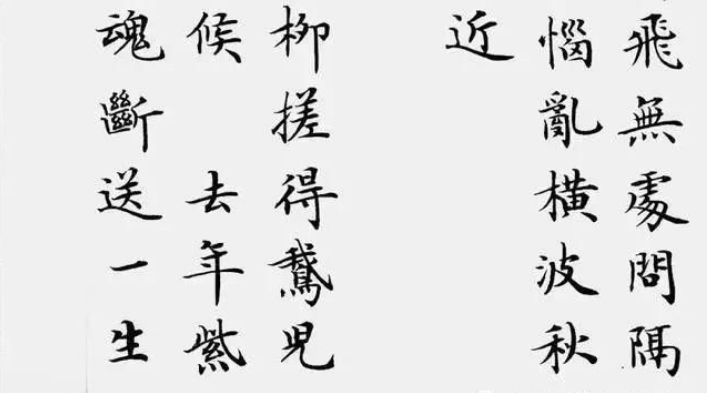 飛無處問隅
惱亂橫波秋
近
柳搓得鵞児
候 去年紫
魂斷送一生